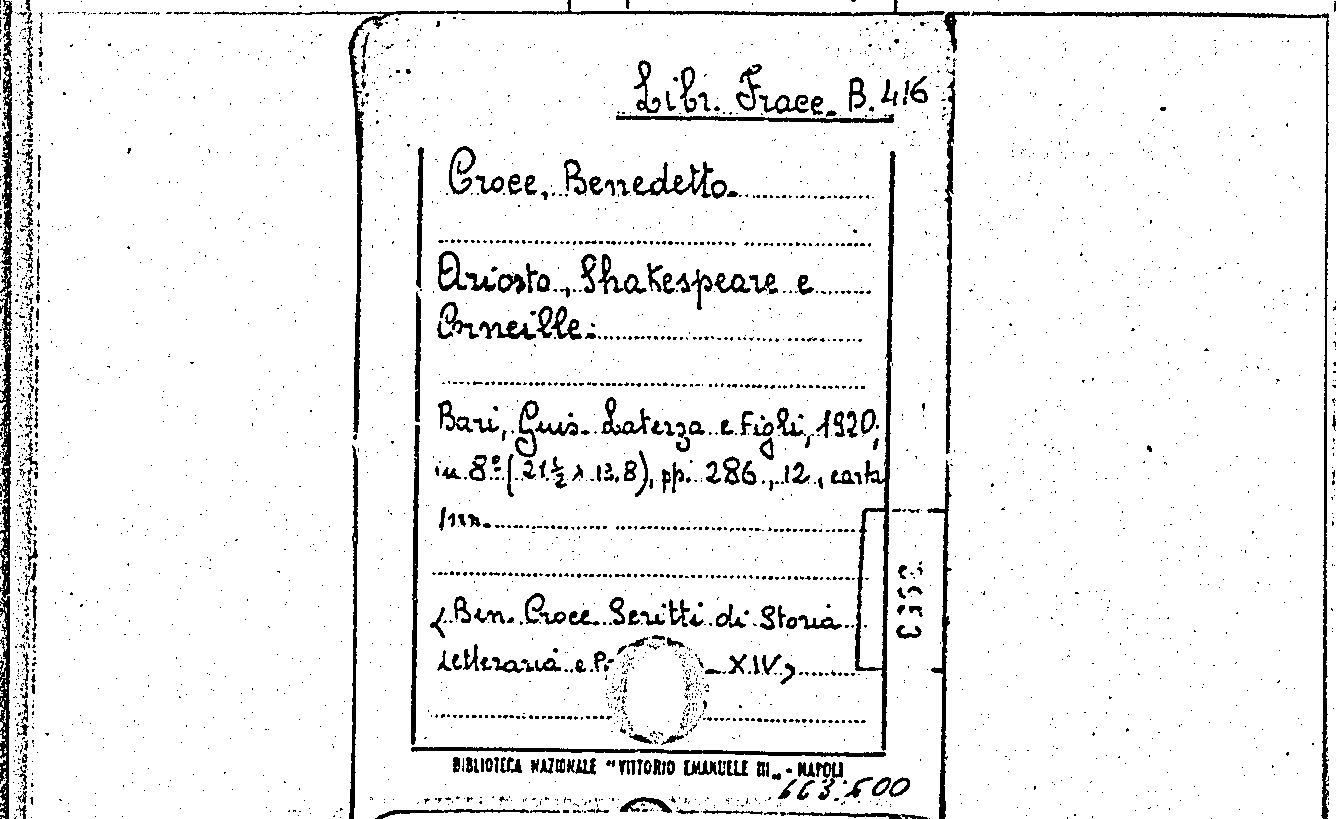 Libr. Frace. B. 416
Croce, Benedetto.
Ariosto, Shakespeare e
Corneille.
Bari, Gius. Laterza e Figli, 1920,
in 8º (21½ x 13.8), pp. 286, 12, carta
Ben. Croce Scritti di Storia
letteraria e XIV
BIBLIOTECA NAZIONALE "VITTORIO EMANUELE III" - NAPOLI